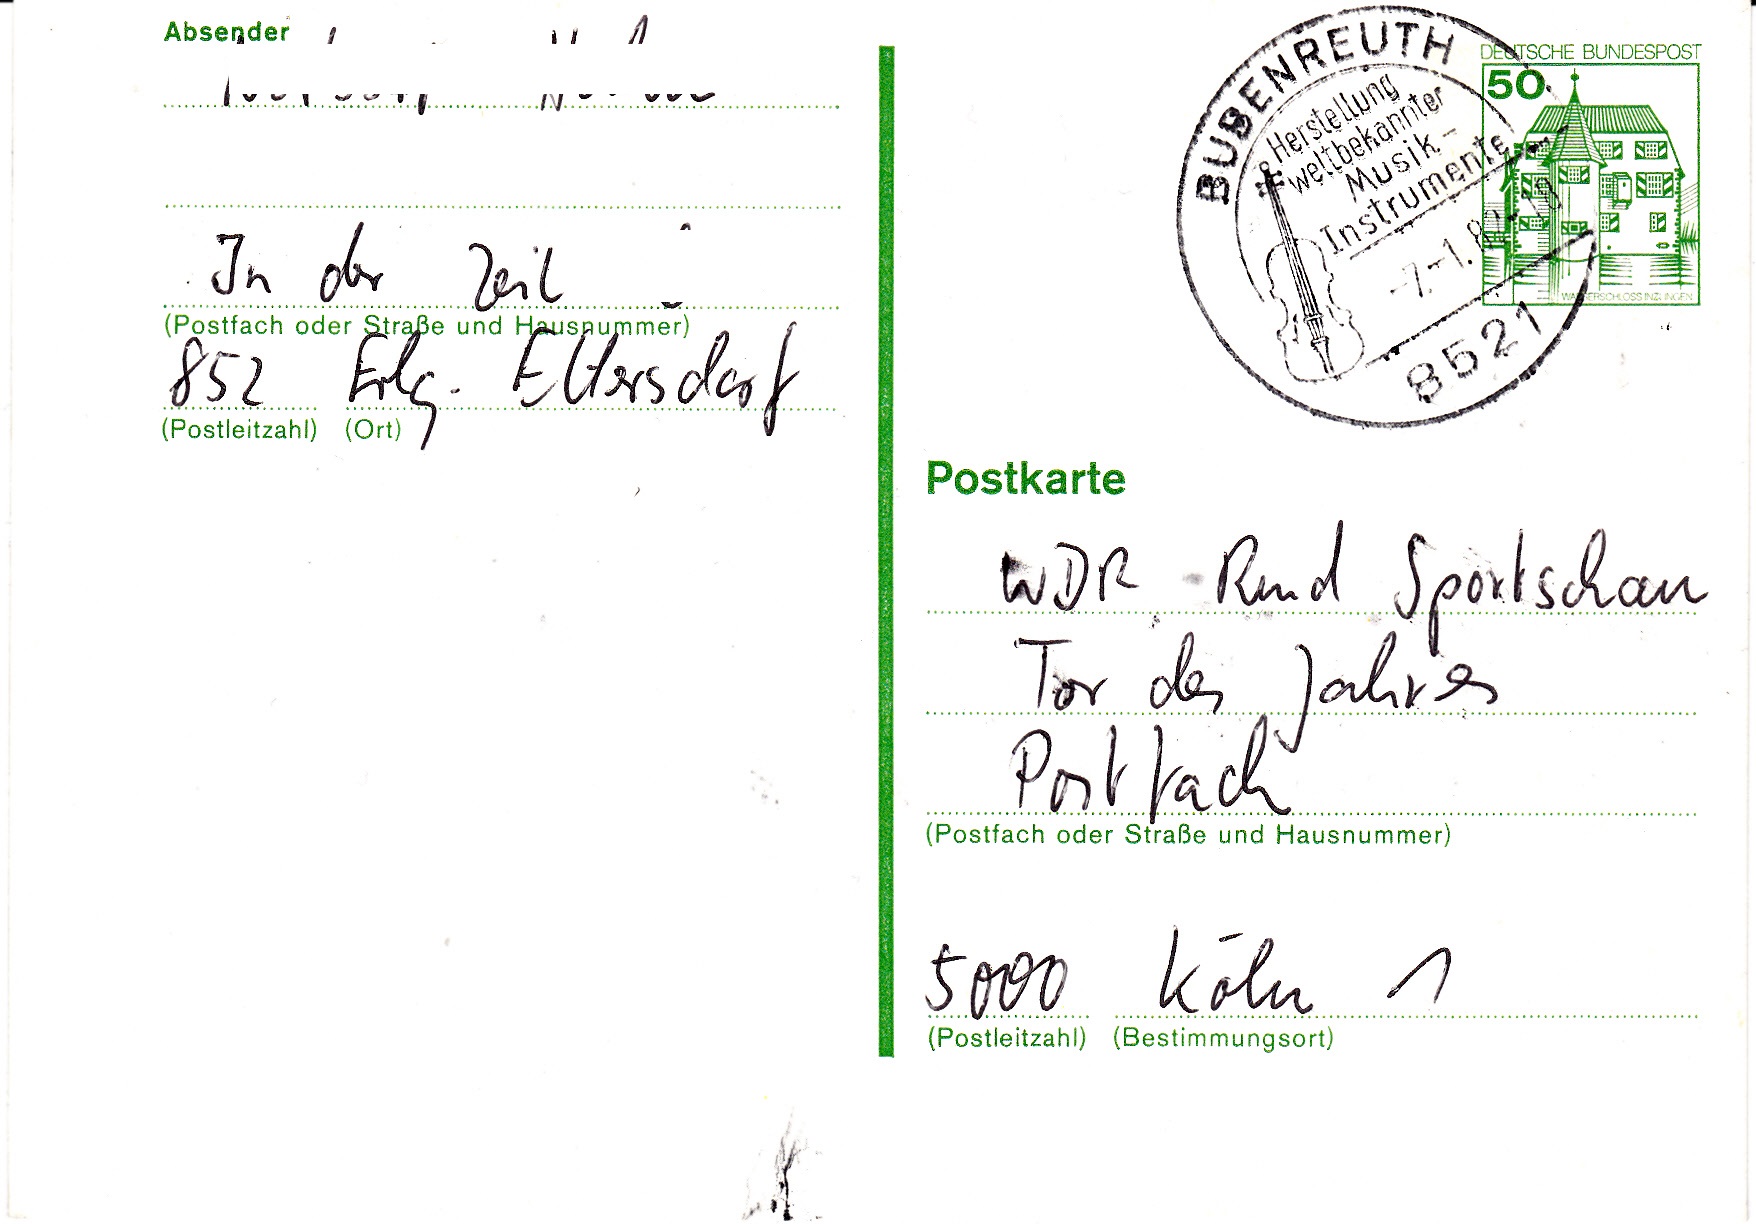 Absender
In der Zeil
(Postfach oder Straße und Hausnummer)
852 Erlg. Eltersdorf
(Postleitzahl) (Ort)
BUBENREUTH
Herstellung
weltbekannter
Musik-
Instrumente
8521
DEUTSCHE BUNDESPOST
50
WASSERSCHLOSS INZLINGEN
Postkarte
WDR Rund Sportschau
Tor des Jahres
Postfach
(Postfach oder Straße und Hausnummer)
5000 Köln 1
(Postleitzahl) (Bestimmungsort)